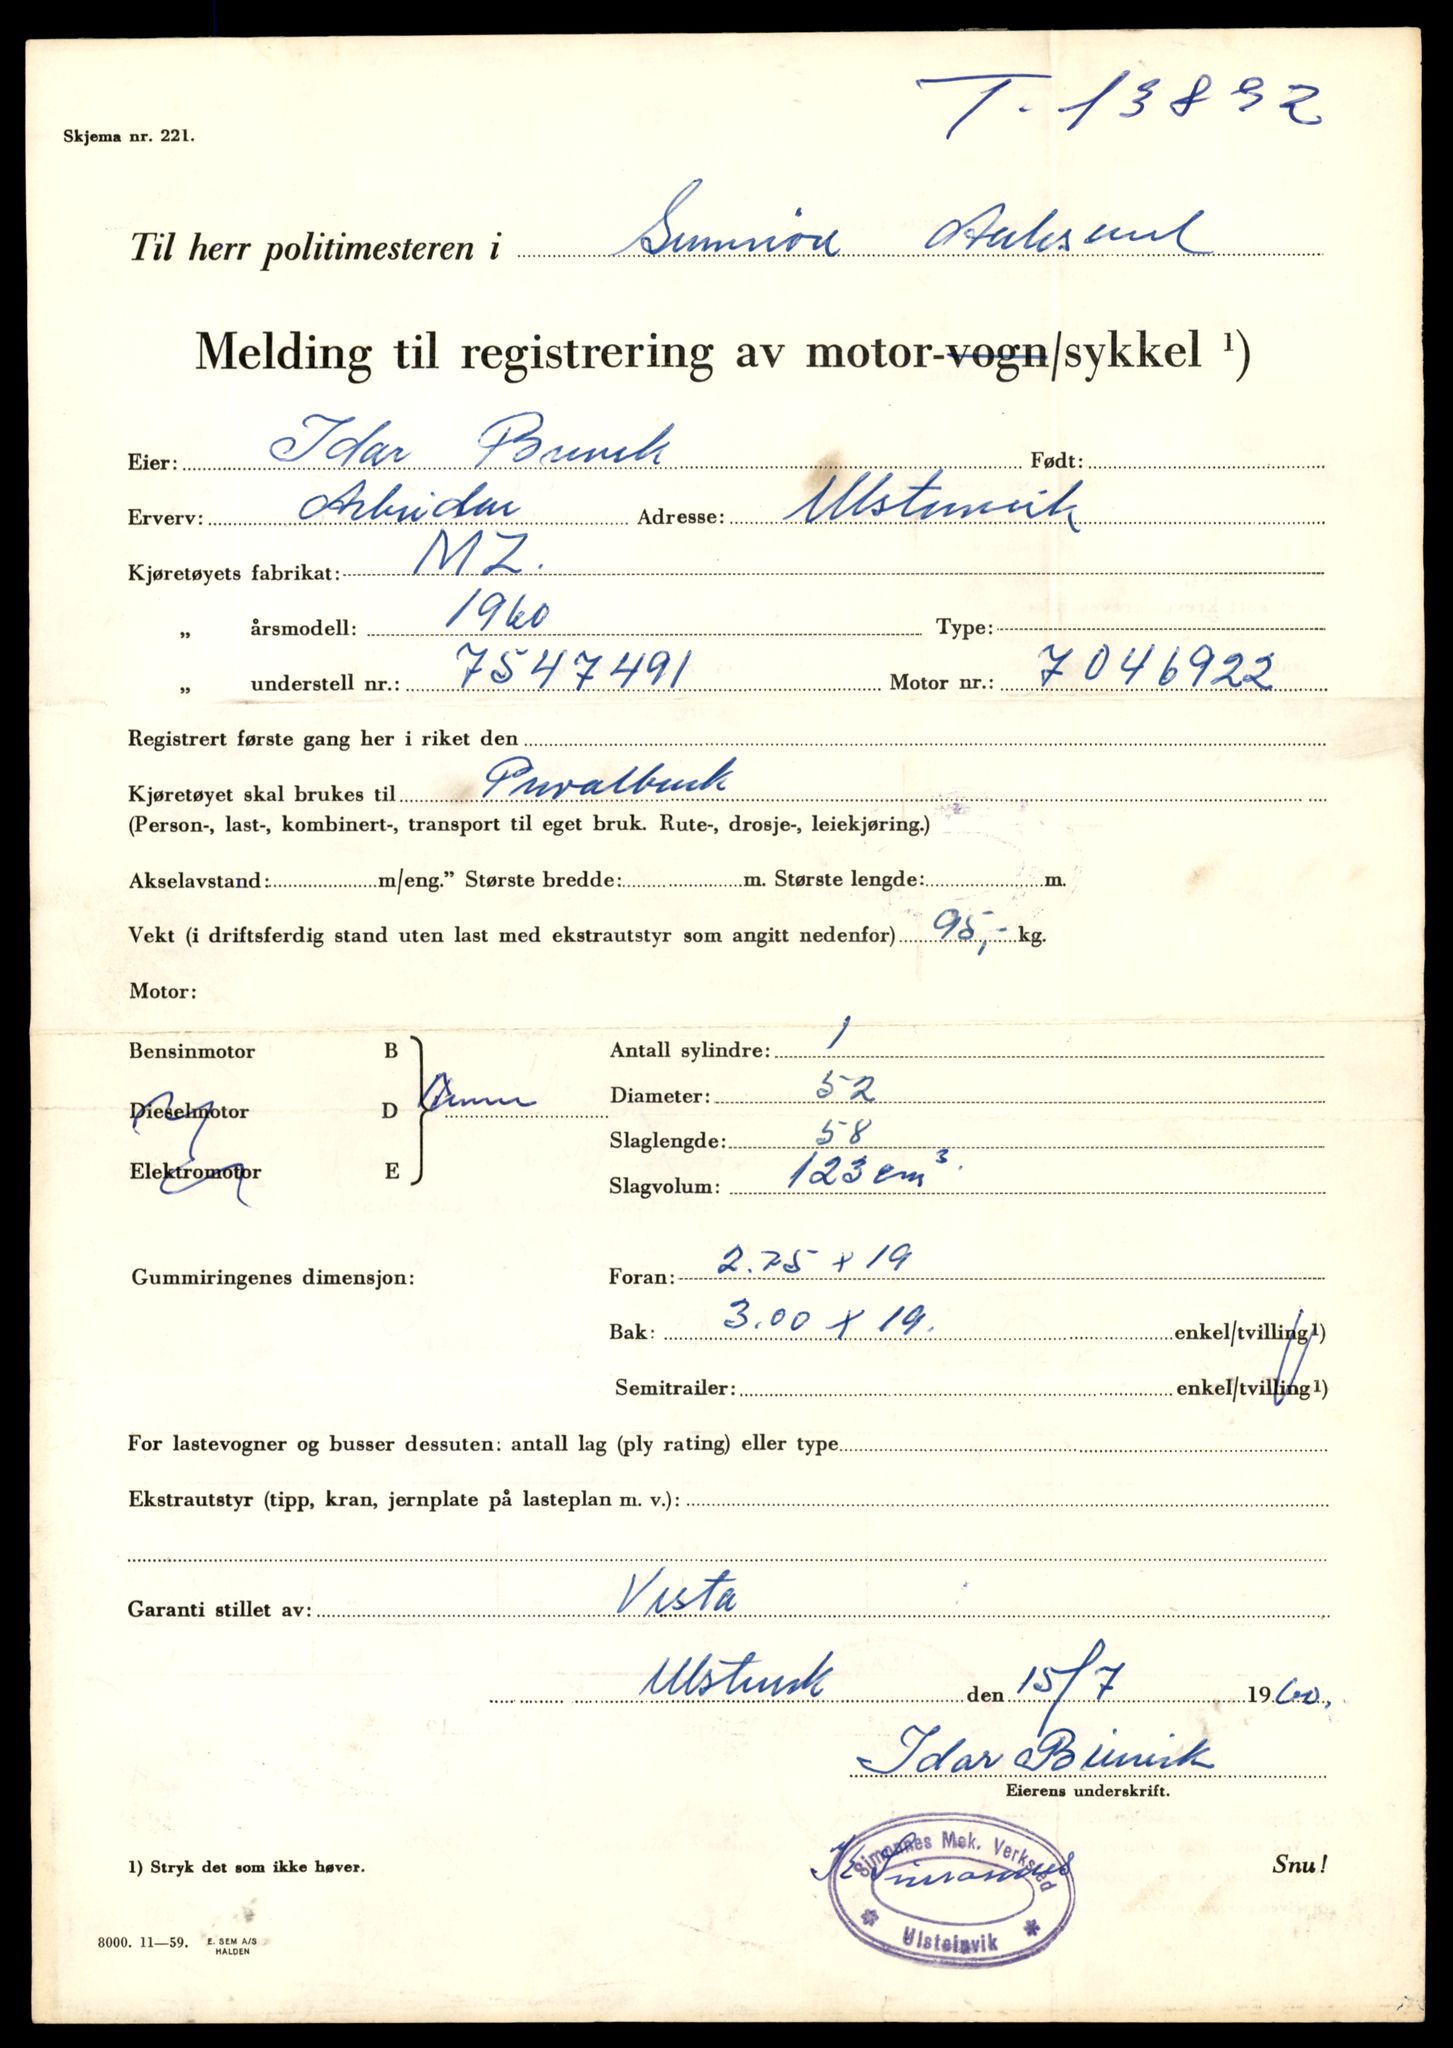 T. 13892
Skjema nr. 221.
Til herr politimesteren i
Melding til registrering av motor-vogn/sykkel ¹)
Eier: Idar Født:
Erverv: Adresse: Ulsteinvik
Kjøretøyets fabrikat: MZ.
„ årsmodell: 1960 Type:
„ understell nr.: 7547491 Motor nr.: 7046922
Registrert første gang her i riket den
Kjøretøyet skal brukes til Privatbruk
(Person-, last-, kombinert-, transport til eget bruk. Rute-, drosje-, leiekjøring.)
Akselavstand: m/eng.” Største bredde: m. Største lengde: m.
Vekt (i driftsferdig stand uten last med ekstrautstyr som angitt nedenfor) 95,- kg.
Motor:
Bensinmotor B Antall sylindre: 1
Diameter: 52
Dieselmotor D
Slaglengde: 58
Elektromotor E
Slagvolum: 123 cm³.
Gummiringenes dimensjon: Foran: 2.75 x 19
Bak: 3.00 x 19. enkel/tvilling¹)
Semitrailer: enkel/tvilling¹)
For lastevogner og busser dessuten: antall lag (ply rating) eller type
Ekstrautstyr (tipp, kran, jernplate på lasteplan m. v.):
Garanti stillet av: Vesta
den 15/7 1960.
Idar
Eierens underskrift.
Simonnes Mek. Verksted
Ulsteinvik
1) Stryk det som ikke høver.
Snu!
8000. 11—59. E. SEM A/S
HALDEN